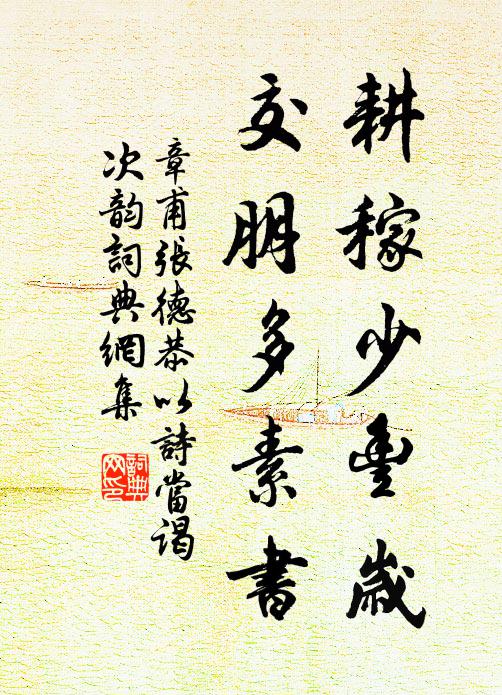 耕稼少豐歲
交朋多素書
章甫張德恭以詩當謁
次韵詞典網集
詞典
网印